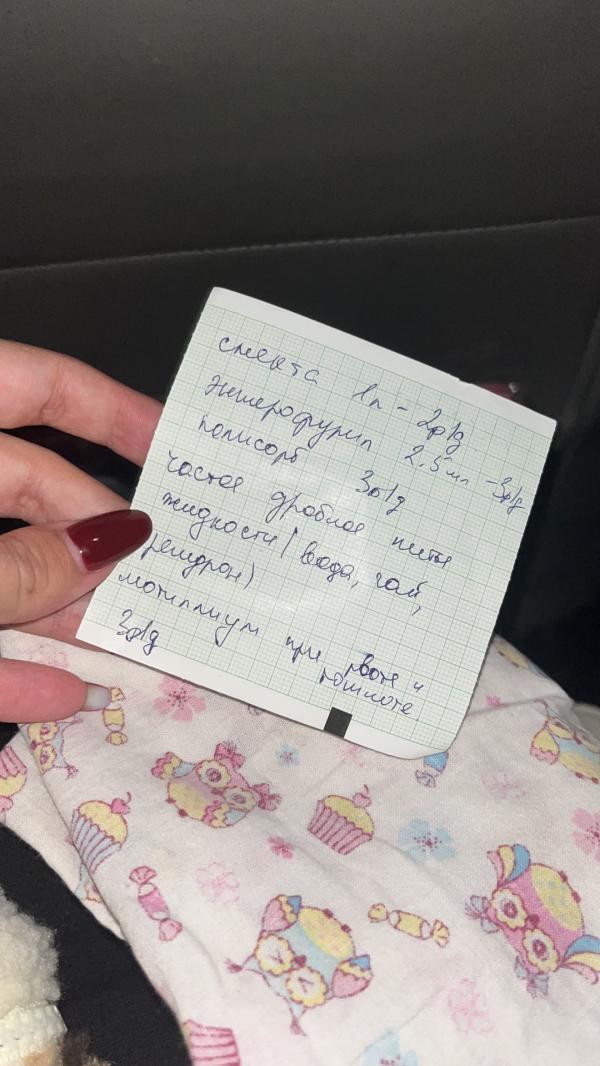 смекта 1п - 2р/д
энтерофурил 2.5 мл - 3р/д
полисорб 3р/д
частое дробное питье
жидкости (вода, чай,
регидрон)
мотилиум при рвоте и
тошноте
3р/д